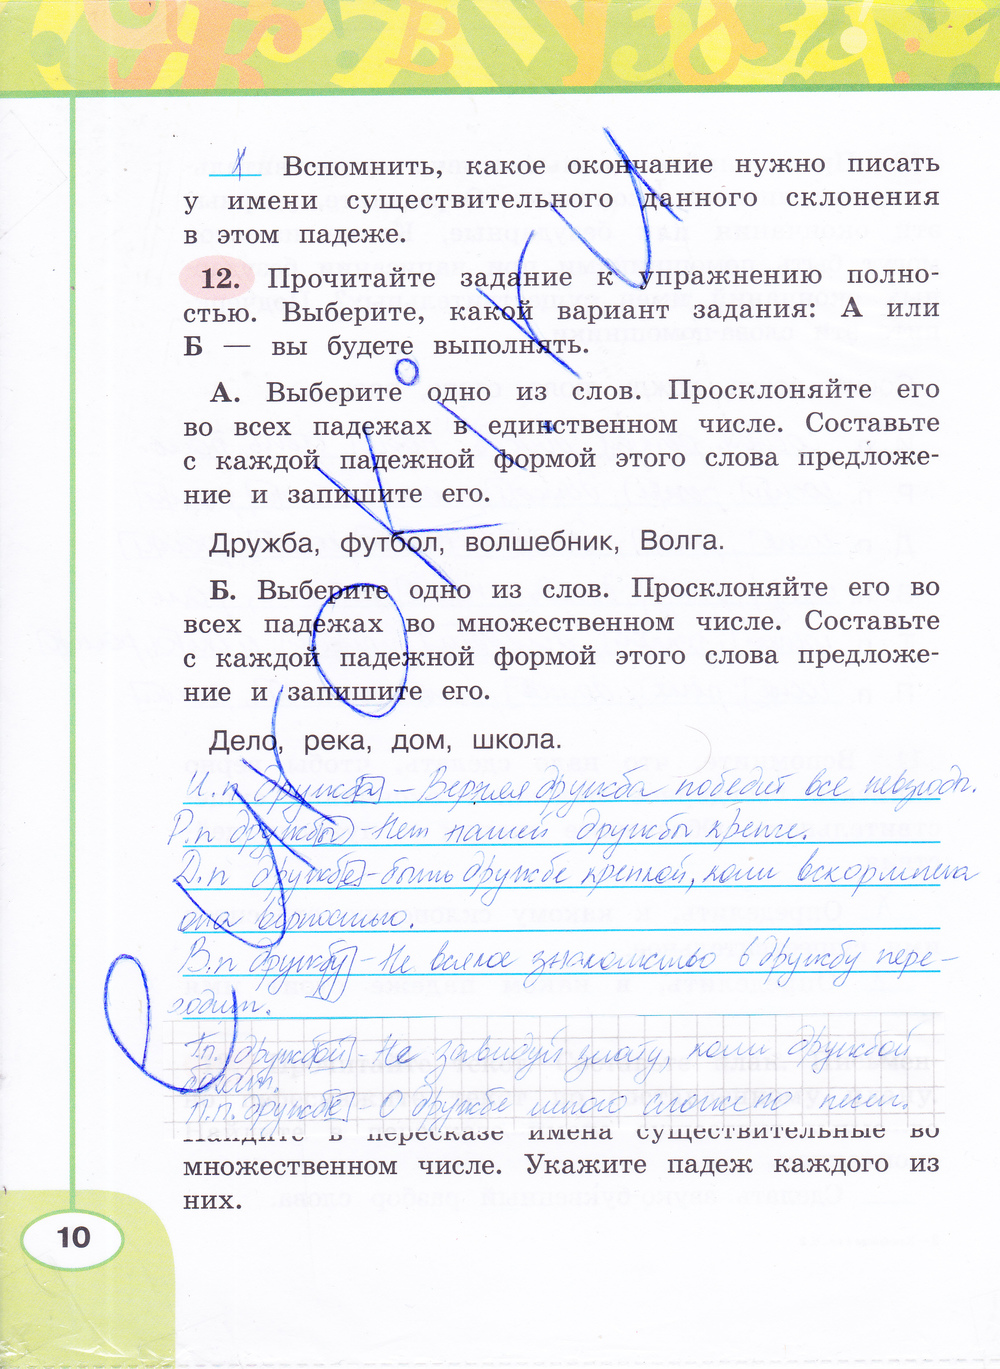 4 Вспомнить, какое окончание нужно писать
у имени существительного данного склонения
в этом падеже.
12. Прочитайте задание к упражнению полно-
стью. Выберите, какой вариант задания: А или
Б — вы будете выполнять.
А. Выберите одно из слов. Просклоняйте его
во всех падежах в единственном числе. Составьте
с каждой падежной формой этого слова предложе-
ние и запишите его.
Дружба, футбол, волшебник, Волга.
Б. Выберите одно из слов. Просклоняйте его во
всех падежах во множественном числе. Составьте
с каждой падежной формой этого слова предложе-
ние и запишите его.
Дело, река, дом, школа.
И.п дружба – Верная дружба победит все невзгоды.
Р.п дружбы – Нет нашей дружбы крепче.
Д.п дружбе – быть дружбе крепкой, коли вскормлена
она верностью.
В.п дружбу – Не всякое знакомство в дружбу пере-
ходит.
Т.п. дружбой – Не завидуй злату, коли дружбой
богат.
П.п. дружбе – О дружбе много сложено песен.
Найдите в пересказе имена существительные во
множественном числе. Укажите падеж каждого из
них.
10